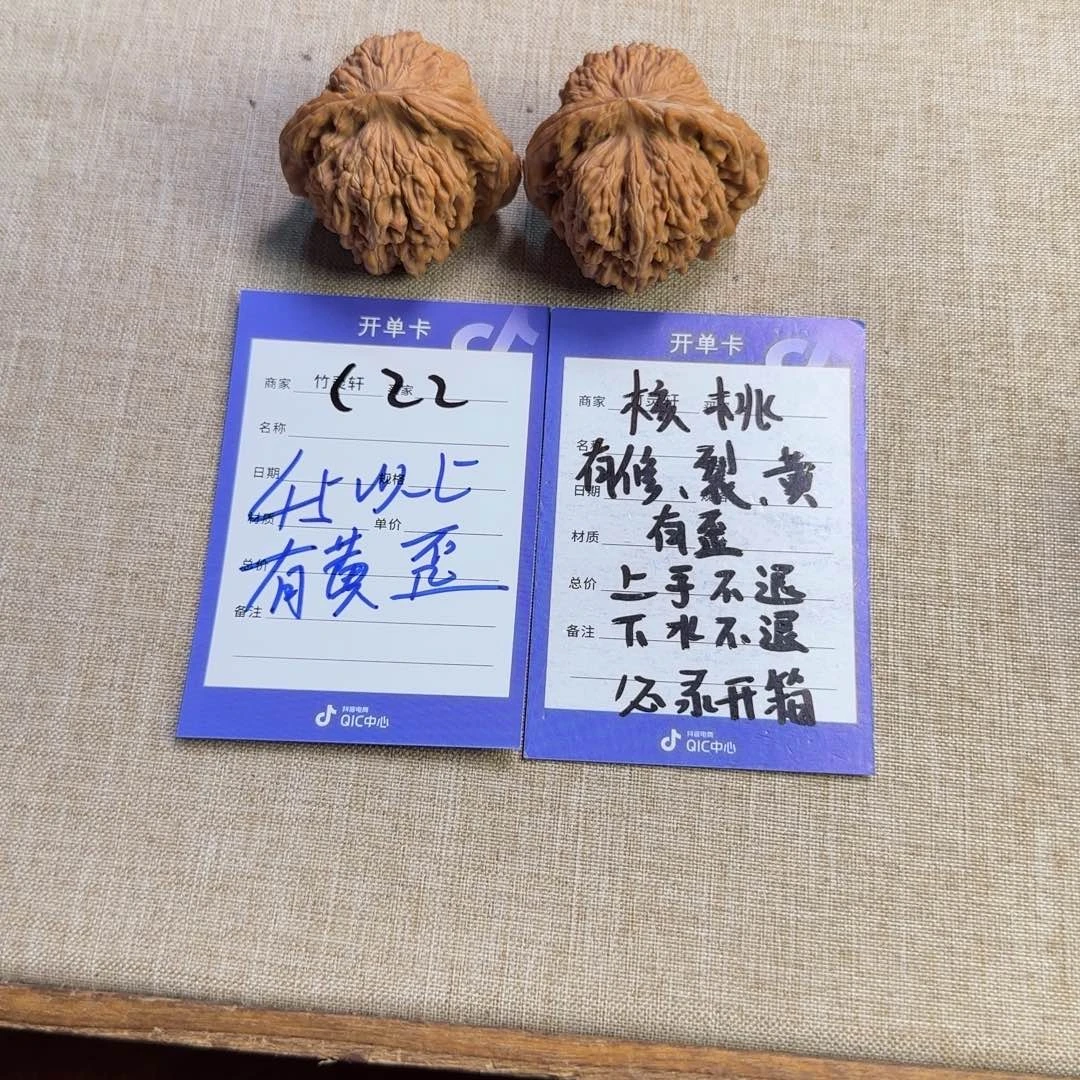 开单卡
商家 竹灵轩
122
名称
日期 规格
45以上
材质 单价
有黄歪
总价
备注
抖音电商
QIC中心
开单卡
商家
核桃
有修、裂、黄
日期
有歪
材质
总价
上手不退
备注
下水不退
必录开箱
抖音电商
QIC中心